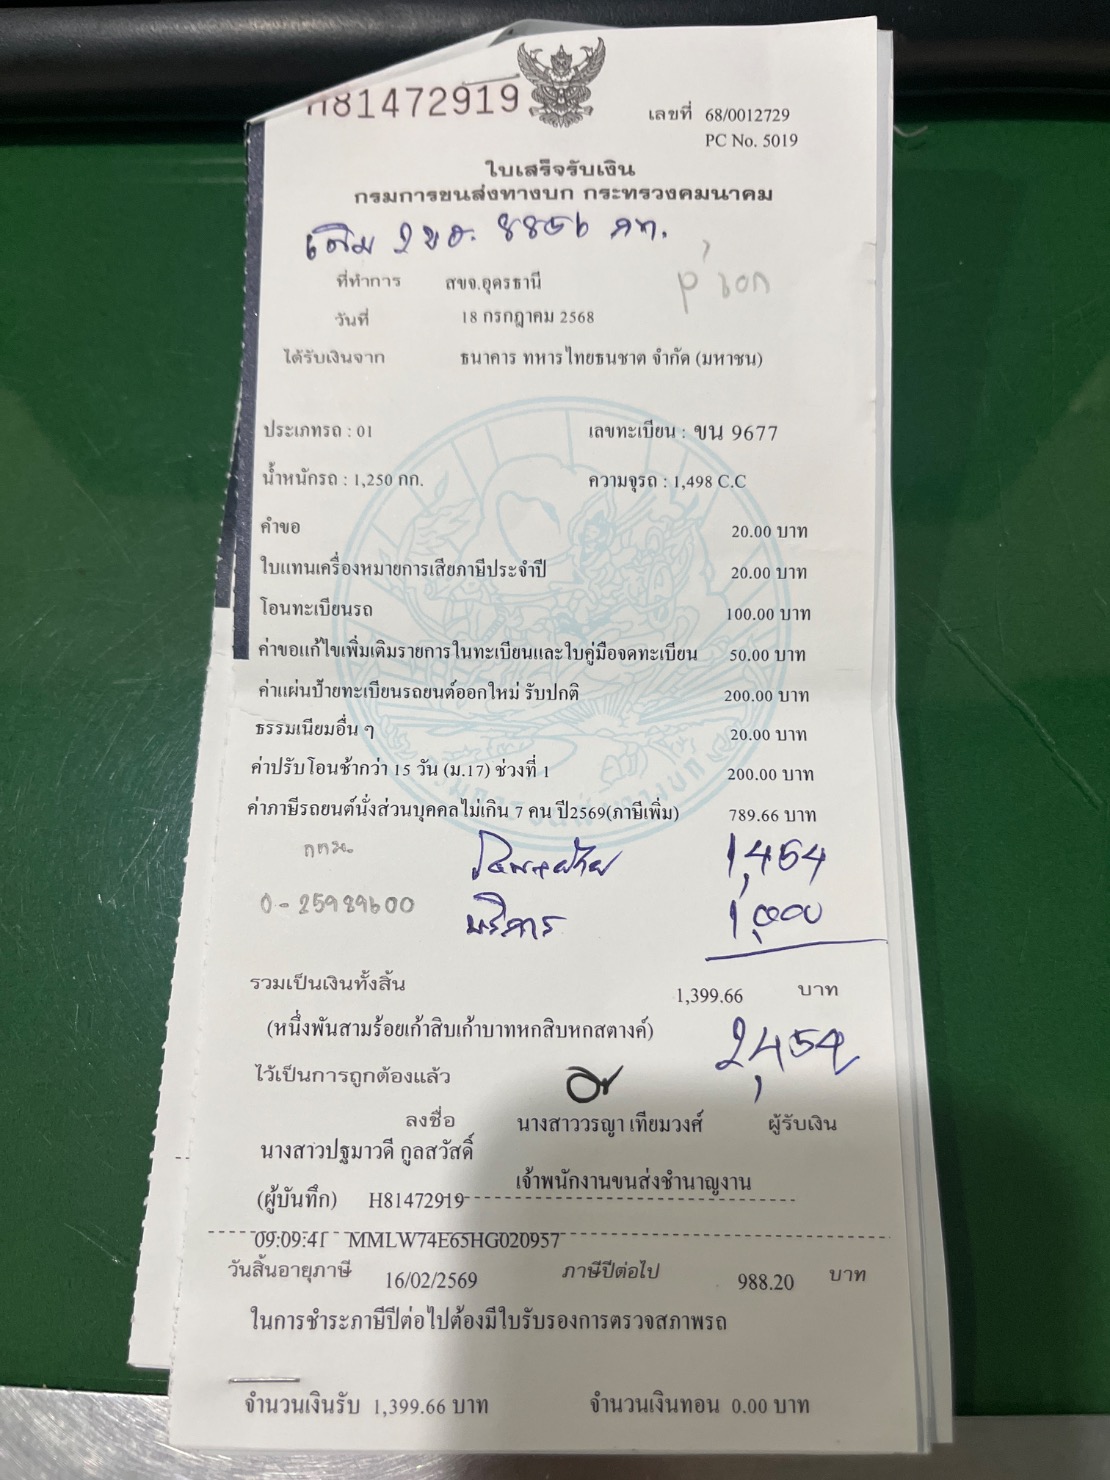 H81472919
เลขที่ 68/0012729
PC No. 5019
ใบเสร็จรับเงิน
กรมการขนส่งทางบก กระทรวงคมนาคม
เดิม 2ขอ. 8856 กท.
ที่ทำการ สขจ.อุดรธานี
p'เอก
วันที่ 18 กรกฎาคม 2568
ได้รับเงินจาก ธนาคาร ทหารไทยธนชาต จำกัด (มหาชน)
ประเภทรถ : 01 เลขทะเบียน : ขน 9677
น้ำหนักรถ : 1,250 กก. ความจุรถ : 1,498 C.C
คำขอ 20.00 บาท
ใบแทนเครื่องหมายการเสียภาษีประจำปี 20.00 บาท
โอนทะเบียนรถ 100.00 บาท
ค่าขอแก้ไขเพิ่มเติมรายการในทะเบียนและใบคู่มือจดทะเบียน 50.00 บาท
ค่าแผ่นป้ายทะเบียนรถยนต์ออกใหม่ รับปกติ 200.00 บาท
ธรรมเนียมอื่น ๆ 20.00 บาท
ค่าปรับโอนช้ากว่า 15 วัน (ม.17) ช่วงที่ 1 200.00 บาท
ค่าภาษีรถยนต์นั่งส่วนบุคคลไม่เกิน 7 คน ปี2569(ภาษีเพิ่ม) 789.66 บาท
1,454
0-25989600 บริการ 1,000
รวมเป็นเงินทั้งสิ้น 1,399.66 บาท
(หนึ่งพันสามร้อยเก้าสิบเก้าบาทหกสิบหกสตางค์) 2,454
ไว้เป็นการถูกต้องแล้ว
ลงชื่อ นางสาววรญา เทียมวงศ์ ผู้รับเงิน
นางสาวปฐมาวดี กูลสวัสดิ์
เจ้าพนักงานขนส่งชำนาญงาน
(ผู้บันทึก) H81472919
09:09:41 MMLW74E65HG020957
วันสิ้นอายุภาษี 16/02/2569 ภาษีปีต่อไป 988.20 บาท
ในการชำระภาษีปีต่อไปต้องมีใบรับรองการตรวจสภาพรถ
จำนวนเงินรับ 1,399.66 บาท จำนวนเงินทอน 0.00 บาท